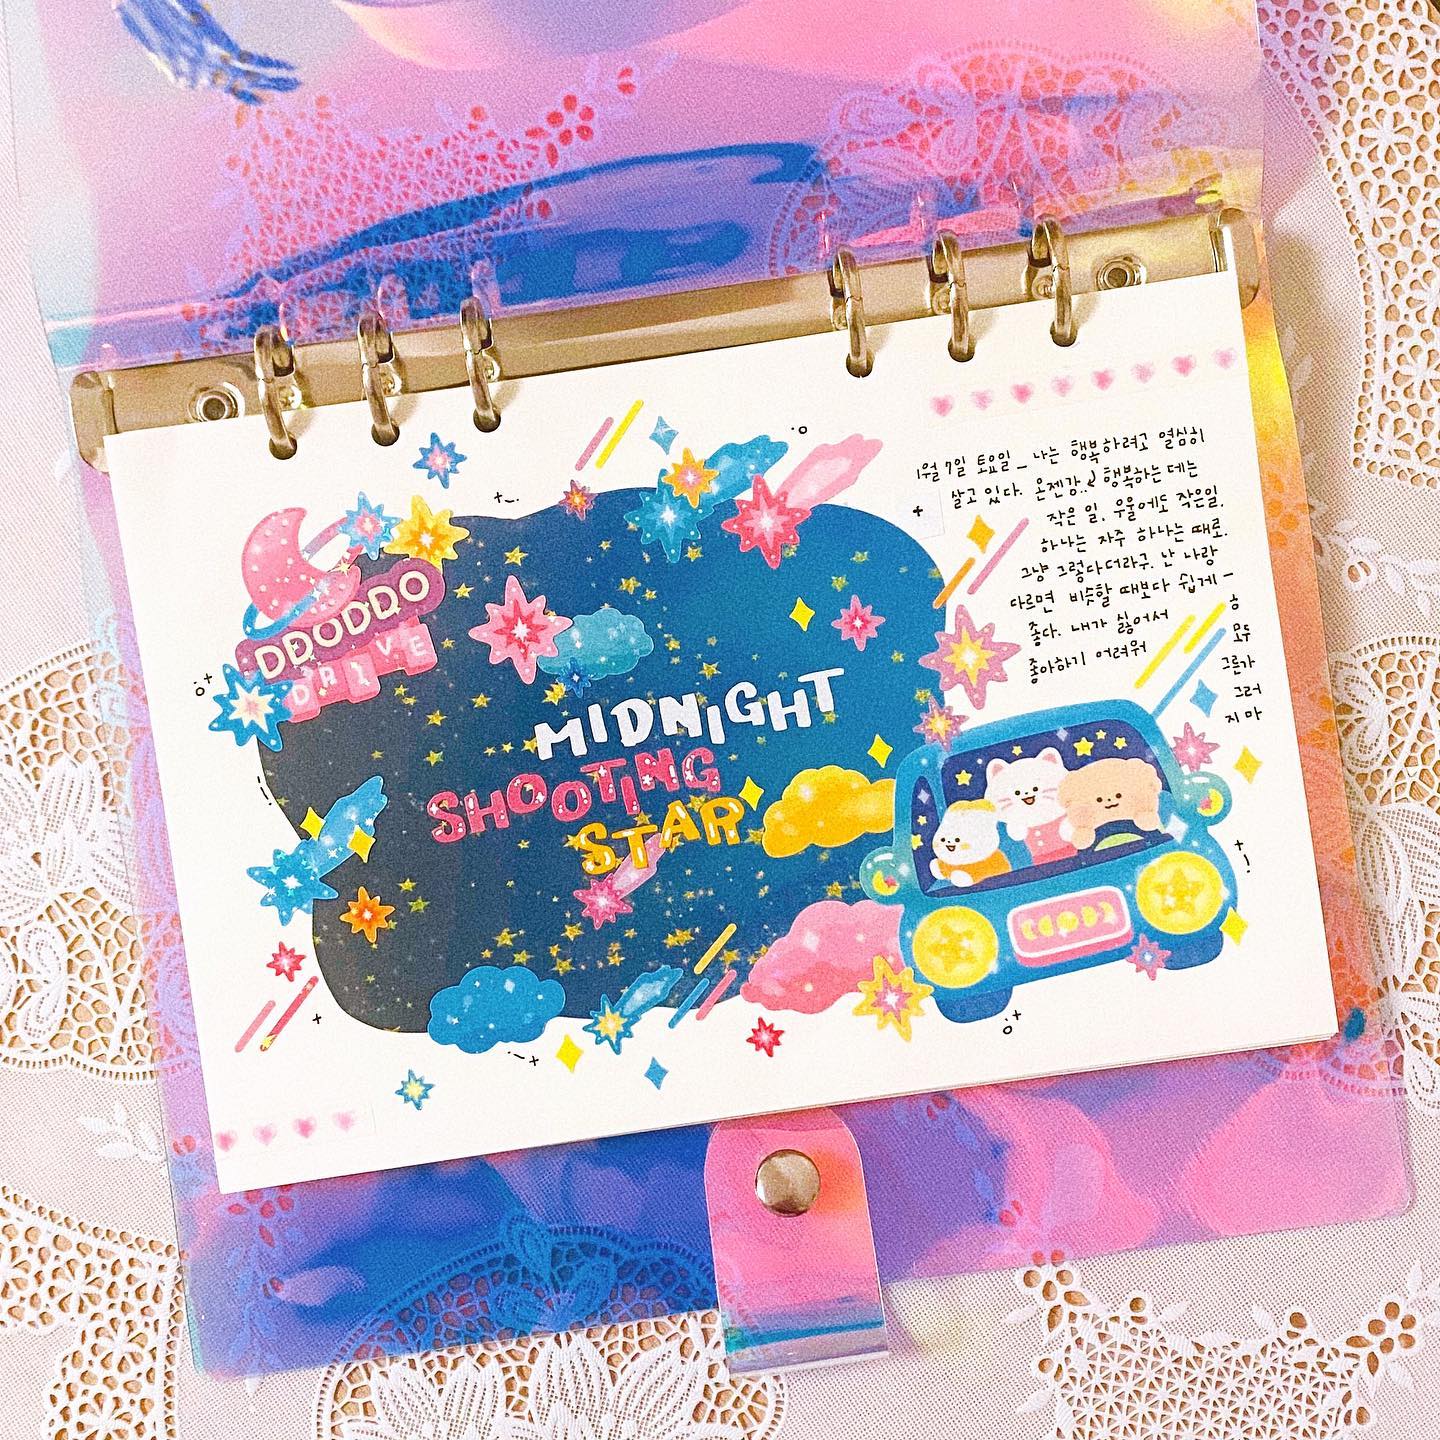 DDODDO
DRIVE
MIDNIGHT
SHOOTING
STAR
1월 7일 토요일_ 나는 행복하려고 열심히
살고 있다. 온젠강.. 행복하는 데는
작은 일. 우울에도 작은일.
하나는 자주 하나는 때로.
그냥 그렇다더라구. 난 나랑
다르면 비슷할 때보다 쉽게 -
좋다. 내가 싫어서
좋아하기 어려워
ㅎ
모두
그른가
그러
지마